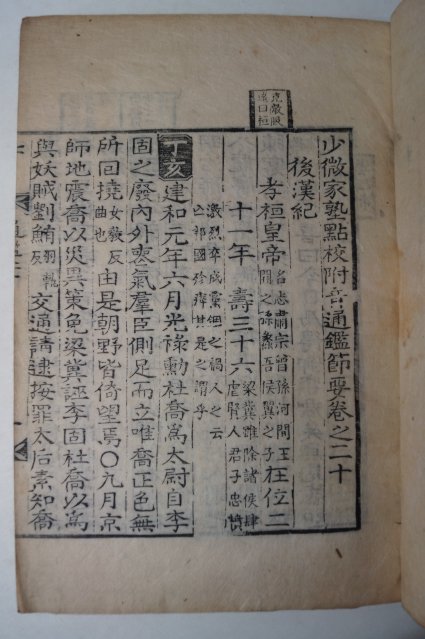 克敵服
遠曰桓
少微家塾點校附音通鑑節要卷之二十
後漢紀
孝桓皇帝 名志肅宗曾孫河間王開之孫蠡吾侯翼之子 在位二
十一年 壽三十六 梁冀雖除諸侯肆虐賢人君子忠憤
激烈卒成黨錮之禍人之云亡邦國殄瘁其是之謂乎
丁亥 建和元年六月光祿勳杜喬爲太尉自李
固之廢內外喪氣羣臣側足而立唯喬正色無
所回撓 女敎反曲也 由是朝野皆倚望焉〇九月京
師地震喬以災異策免梁冀誣李固杜喬以爲
與妖賊劉鮪 羽軌反 交通請逮按罪太后素知喬